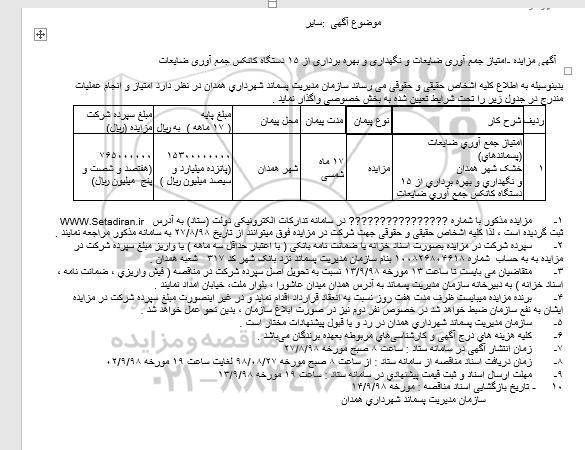 موضوع آگهی :سایر
آگهی مزایده -امتیاز جمع آوری ضایعات و نگهداری و بهره برداری از ۱۵ دستگاه کانکس جمع آوری ضایعات
بدینوسیله به اطلاع کلیه اشخاص حقیقی و حقوقی می رساند سازمان مدیریت پسماند شهرداري همدان در نظر دارد امتیاز و انجام عملیات
مندرج در جدول زیر را تحت شرایط تعیین شده به بخش خصوصی واگذار نماید .
ردیف شرح کار نوع پیمان مدت پیمان محل پیمان مبلغ پایه ( ۱۷ ماهه ) به ریال مبلغ سپرده شرکت مزایده (ریال)
۱ امتیاز جمع آوري ضایعات (پسماندهاي) خشک شهر همدان و نگهداري و بهره برداري از ۱۵ دستگاه کانکس جمع آوري ضایعات مزایده ۱۷ ماه شمسی شهر همدان ۱۵۳۰۰۰۰۰۰۰۰ (پانزده میلیارد و سیصد میلیون ریال ) ۷۶۵۰۰۰۰۰۰ (هفتصد و شصت و پنج میلیون ریال)
۱- مزایده مذکور با شماره ???????????????? در سامانه تدارکات الکترونیکي دولت (ستاد) به آدرس WWW.Setadiran.ir
ثبت گردیده است ، لذا کلیه اشخاص حقیقی و حقوقی جهت شرکت در مزایده فوق میتوانند از تاریخ ۲۷/۸/۹۸ به سامانه مذکور مراجعه نمایند .
۲- سپرده شرکت در مزایده بصورت اسناد خزانه یا ضمانت نامه بانکی ( با اعتبار حداقل سه ماهه ) یا واریز مبلغ سپرده شرکت در
مزایده به به حساب شماره ۱۰۰۸۲۶۸۰۴۶۱۸ بنام سازمان مدیریت پسماند نزد بانک شهر کد ۳۱۷ شعبه همدان
۳- متقاضیان می بایست تا ساعت ۱۳ مورخه ۱۳/۹/۹۸ نسبت به تحویل اصل سپرده شرکت در مناقصه ( فیش واریزي ، ضمانت نامه ،
اسناد خزانه ) به دبیرخانه سازمان مدیریت پسماند به آدرس همدان میدان عاشورا ، بلوار ملت، خیابان امداد نمایند .
۴- برنده مزایده میبایست ظرف مدت هفت روز نسبت به انعقاد قرارداد اقدام نماید و در غیر اینصورت مبلغ سپرده شرکت در مزایده
ایشان به نفع سازمان ضبط خواهد شد در خصوص نفر دوم نیز در صورت ابلاغ سازمان ، بدین نحو عمل خواهد شد .
۵- سازمان مدیریت پسماند شهرداري همدان در رد و یا قبول پیشنهادات مختار است .
۶- کلیه هزینه هاي درج آگهی و کارشناسی هاي مربوطه بعهده برندگان می باشد .
۷- زمان انتشار آگهی در سامانه ستاد : ساعت ۸ صبح مورخه ۲۷/۸/۹۸
۸- زمان دریافت اسناد مناقصه از سامانه ستاد : از ساعت ۸ صبح مورخه ۹۸/۰۸/۲۷ لغایت ساعت ۱۹ مورخه ۰۲/۹/۹۸
۹- مهلت ارسال اسناد و ثبت قیمت پیشنهادي در سامانه ستاد : ساعت ۱۹ مورخه ۱۳/۹/۹۸
۱۰- تاریخ بازگشایی اسناد مناقصه : مورخه ۱۴/۹/۹۸
سازمان مدیریت پسماند شهرداري همدان